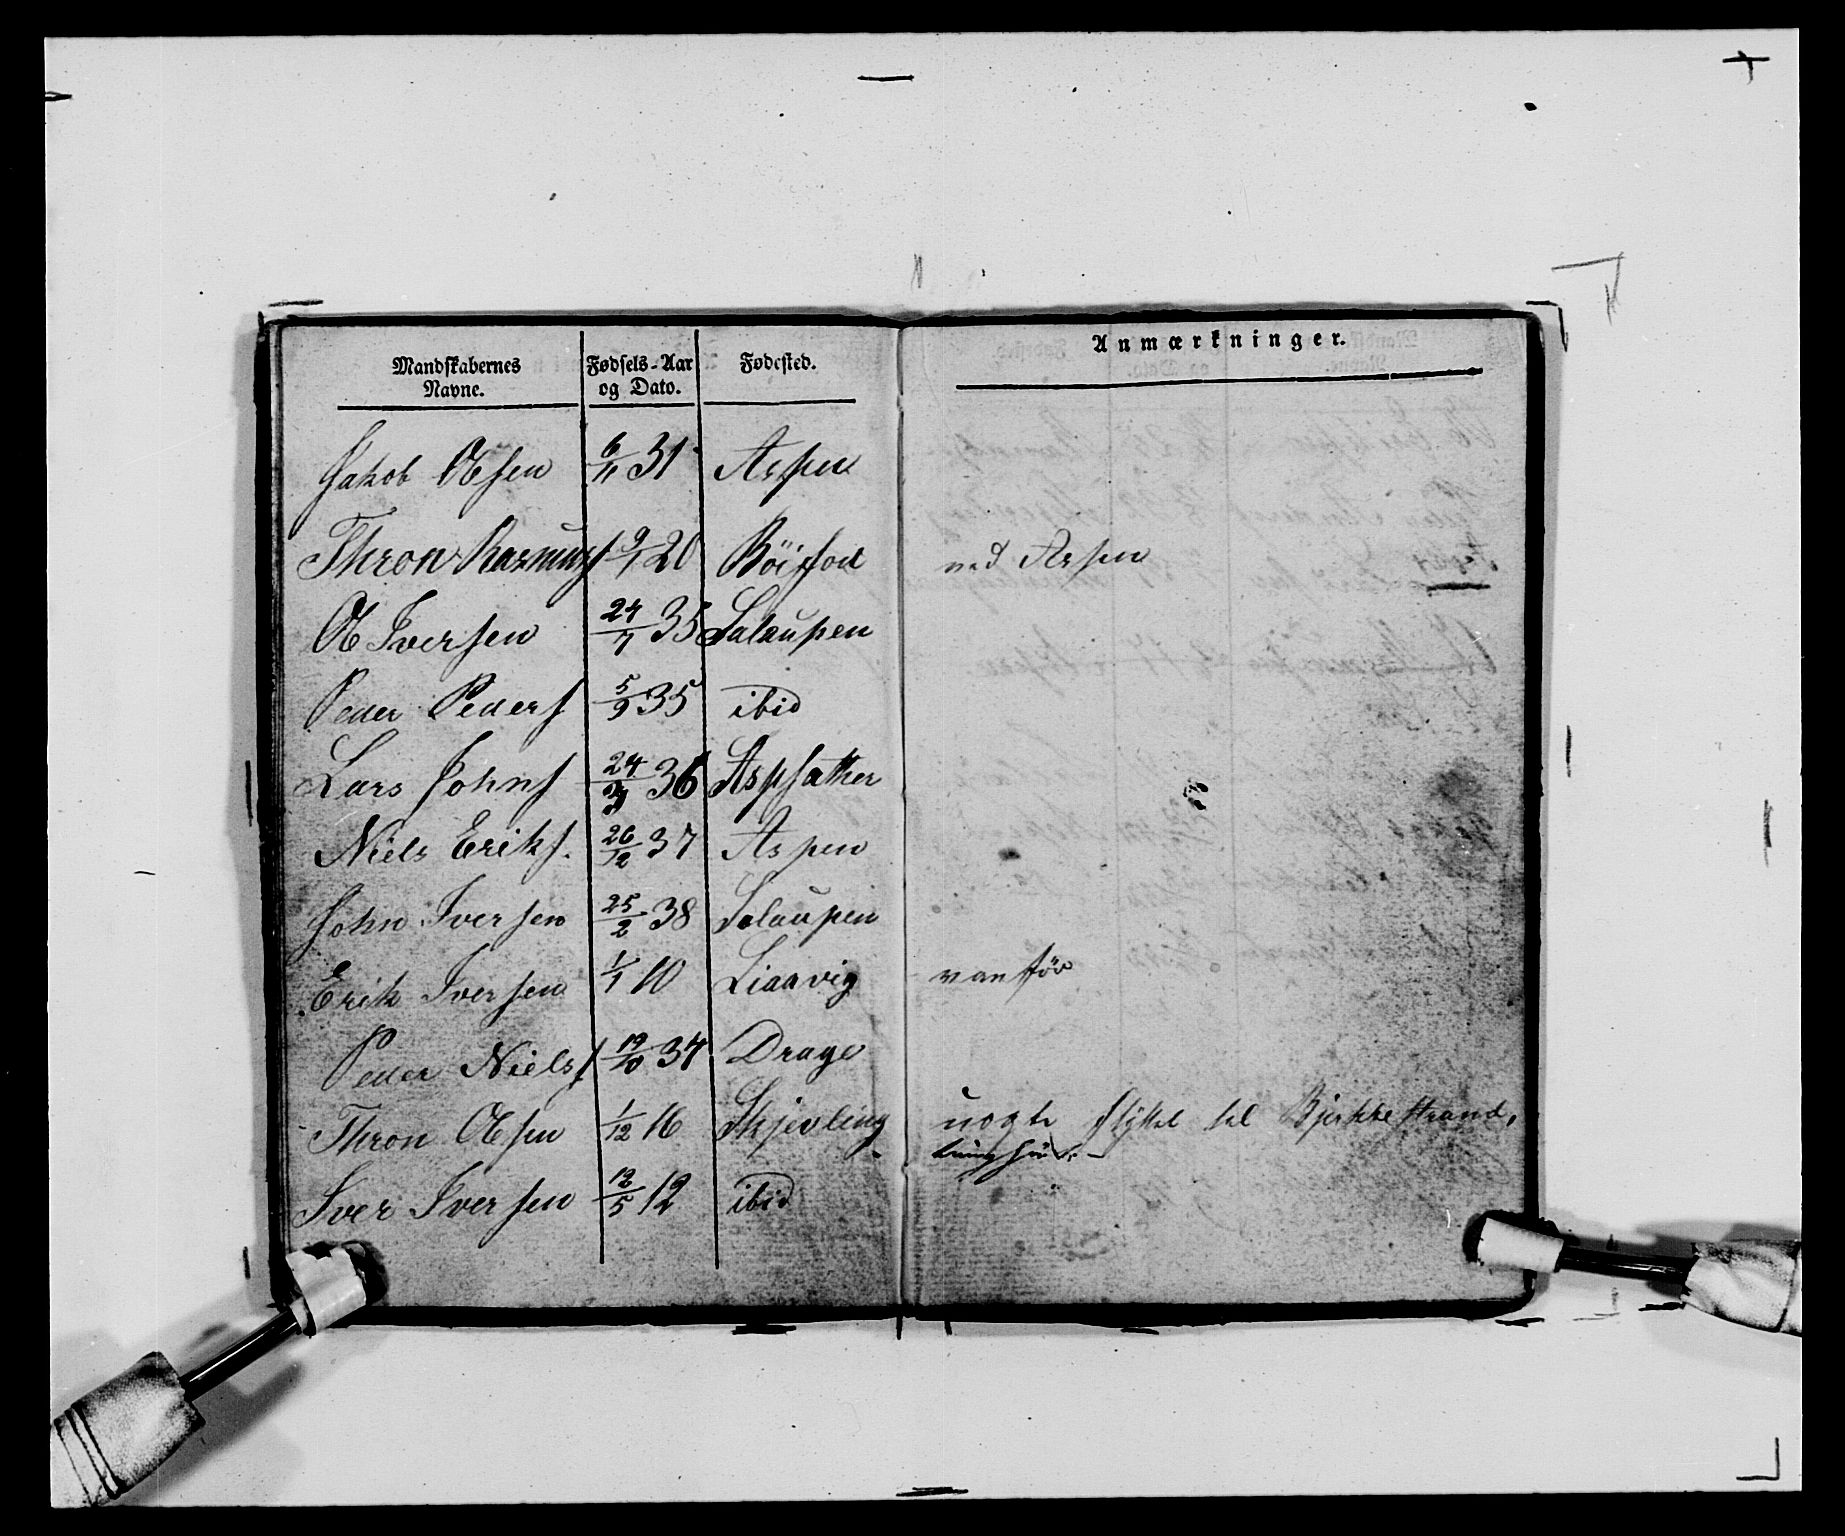 Mandskabernes Navne. Fødsels-Aar og Dato. Fødested. Anmærkninger.
Jakob Olsen 6/11 31 Aspen
Thron Rasmuss 9/1 20 Böifod ved Aspen
Ol Iversen 24/7 35 Salaupen
Peder Peders 5/9 35 ibid
Lars Johns 24/3 36 Aspsather
Niels Eriks. 26/12 37 Aspen
John Iversen 25/2 38 Solaupen
Erik Iversen 1/1 10 Liaavig vanför
Peder Niels 19/10 34 Drage
Thron Olsen 1/12 16 Skjevling flÿttet til Bjerkestrand,
Iver Iversen 12/5 12 ibid